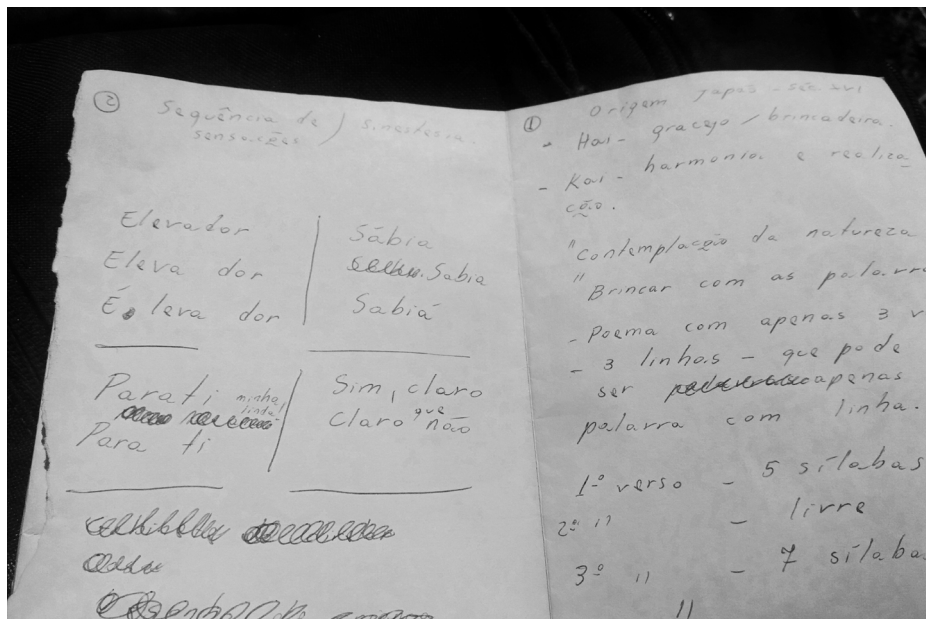 ②
Sequência de
sensações
) sinestesia
Elevador
Eleva dor
É leva dor
Sábia
Sabia
Sabiá
Parati minha
linda
Para ti
Sim, claro
Claro que
não
①
Origem Japão - séc. XVI
- Hai - gracejo / brincadeira.
- Kai - harmonia e realiza
ção.
"Contemplação da natureza
"Brincar com as palavr
- Poema com apenas 3 v
- 3 linhas - que pode
ser apenas
palavra com linha.
1º verso - 5 sílabas
2º " - livre
3º " - 7 sílaba
"